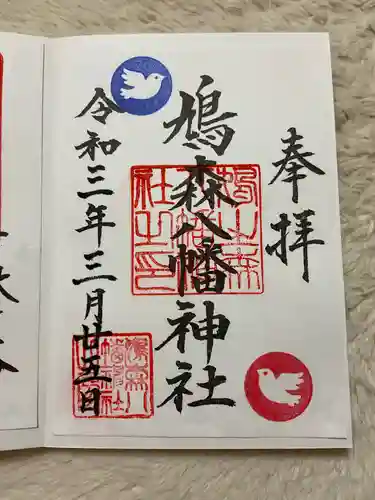 奉拝
鳩森八幡神社
令和三年三月廿五日